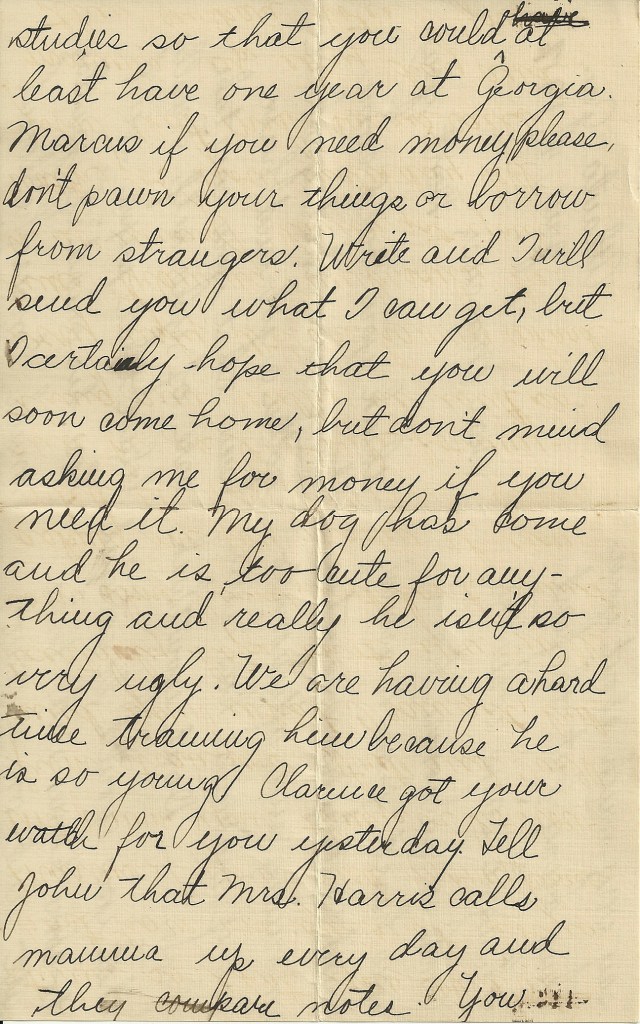 studies so that you could at
least have one year at Georgia.
Marcus if you need money please,
don't pawn your things or borrow
from strangers. Write and I will
send you what I can get, but
I certainly hope that you will
soon come home, but don't mind
asking me for money if you
need it. My dog has come
and he is too cute for any-
thing and really he isn't so
very ugly. We are having a hard
time training him because he
is so young. Clarence got your
watch for you yesterday. Tell
John that Mrs. Harris calls
mamma up every day and
they compare notes. You